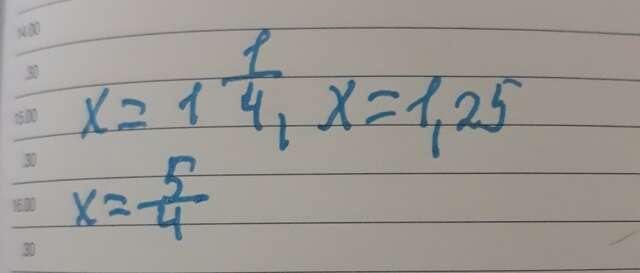 14.00
.30
x = 1 1/4, x = 1,25
15.00
.30
x = 5/4
16.00
.30